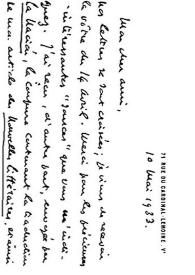 71 RUE DU CARDINAL-LEMOINE · Vᵉ
10 Mai 1983.
Mon cher ami,
Nos lettres se sont croisées, je viens de recevoir
la vôtre du 14 avril. Merci pour les précieuses
intéressantes "sources" que vous m'indi-
quez. J'ai reçu, d'autre part, envoyée par
la la coupure contenant la traduction
de mon article des Nouvelles littéraires, et ainsi